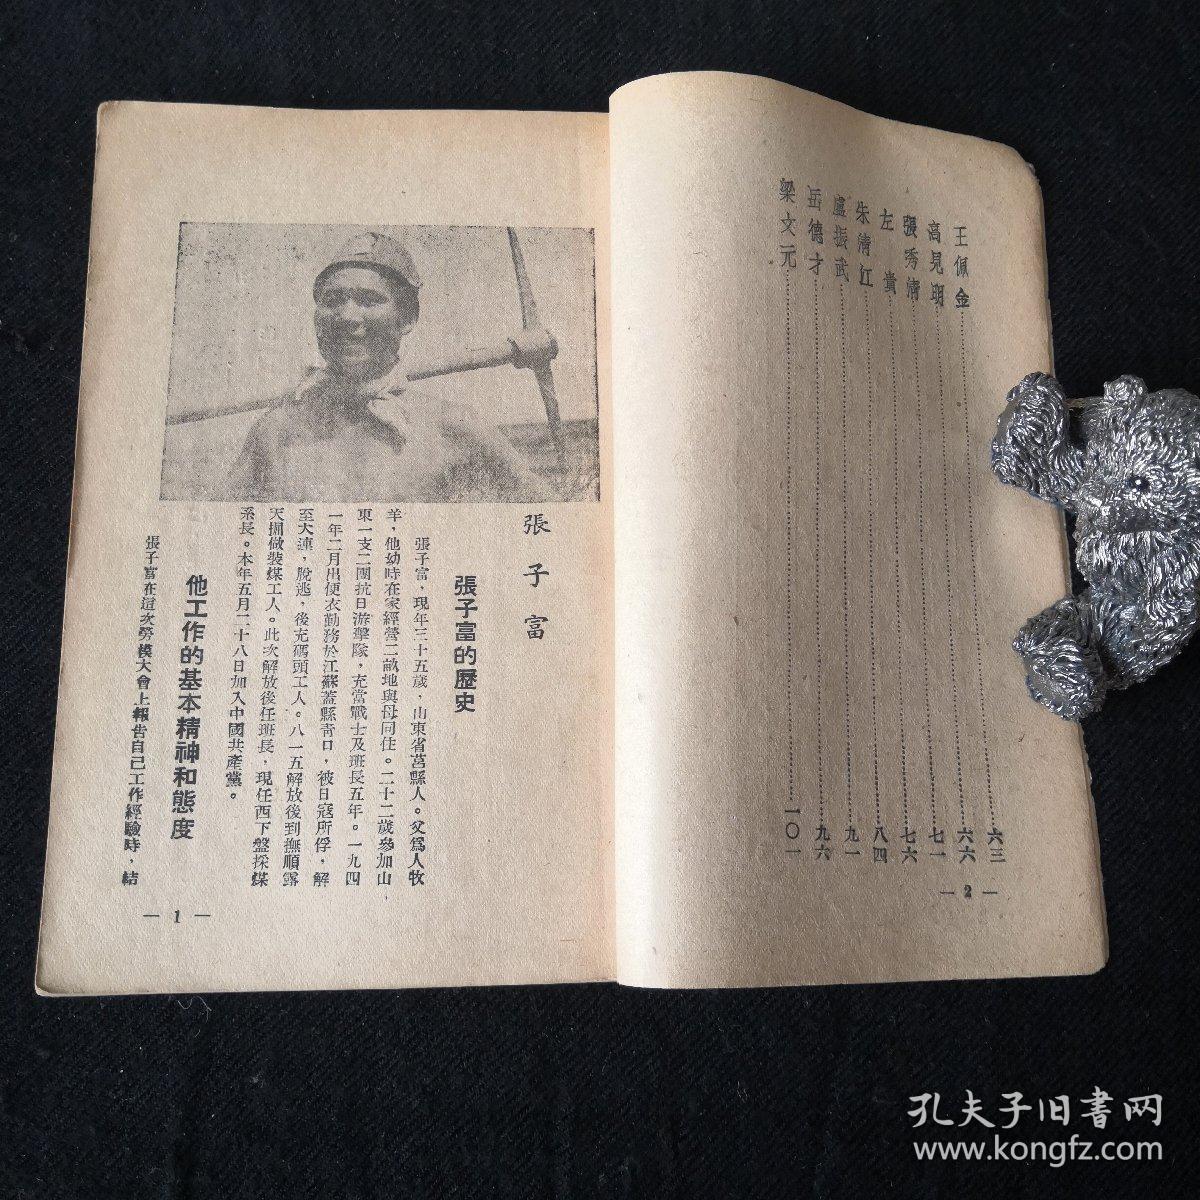 王佩金……六三
高見明……六六
張秀清……七一
左 貴……七六
朱清江……八四
盧振武……九一
岳德才……九六
梁文元……一〇一
— 2 —
張子富
張子富的歷史
張子富，現年三十五歲，山東省莒縣人。父爲人牧
羊，他幼時在家經營二畝地與母同住。二十二歲參加山
東一支二團抗日游擊隊，充當戰士及班長五年。一九四
一年二月出便衣勤務於江蘇蓋縣青口，被日寇所俘，解
至大連，脫逃，後充碼頭工人。八一五解放後到撫順露
天掘做裝煤工人。此次解放後任班長，現任西下盤採煤
系長。本年五月二十八日加入中國共產黨。
他工作的基本精神和態度
張子富在這次勞模大會上報告自己工作經驗時，結
— 1 —
孔夫子旧書网
www.kongfz.com